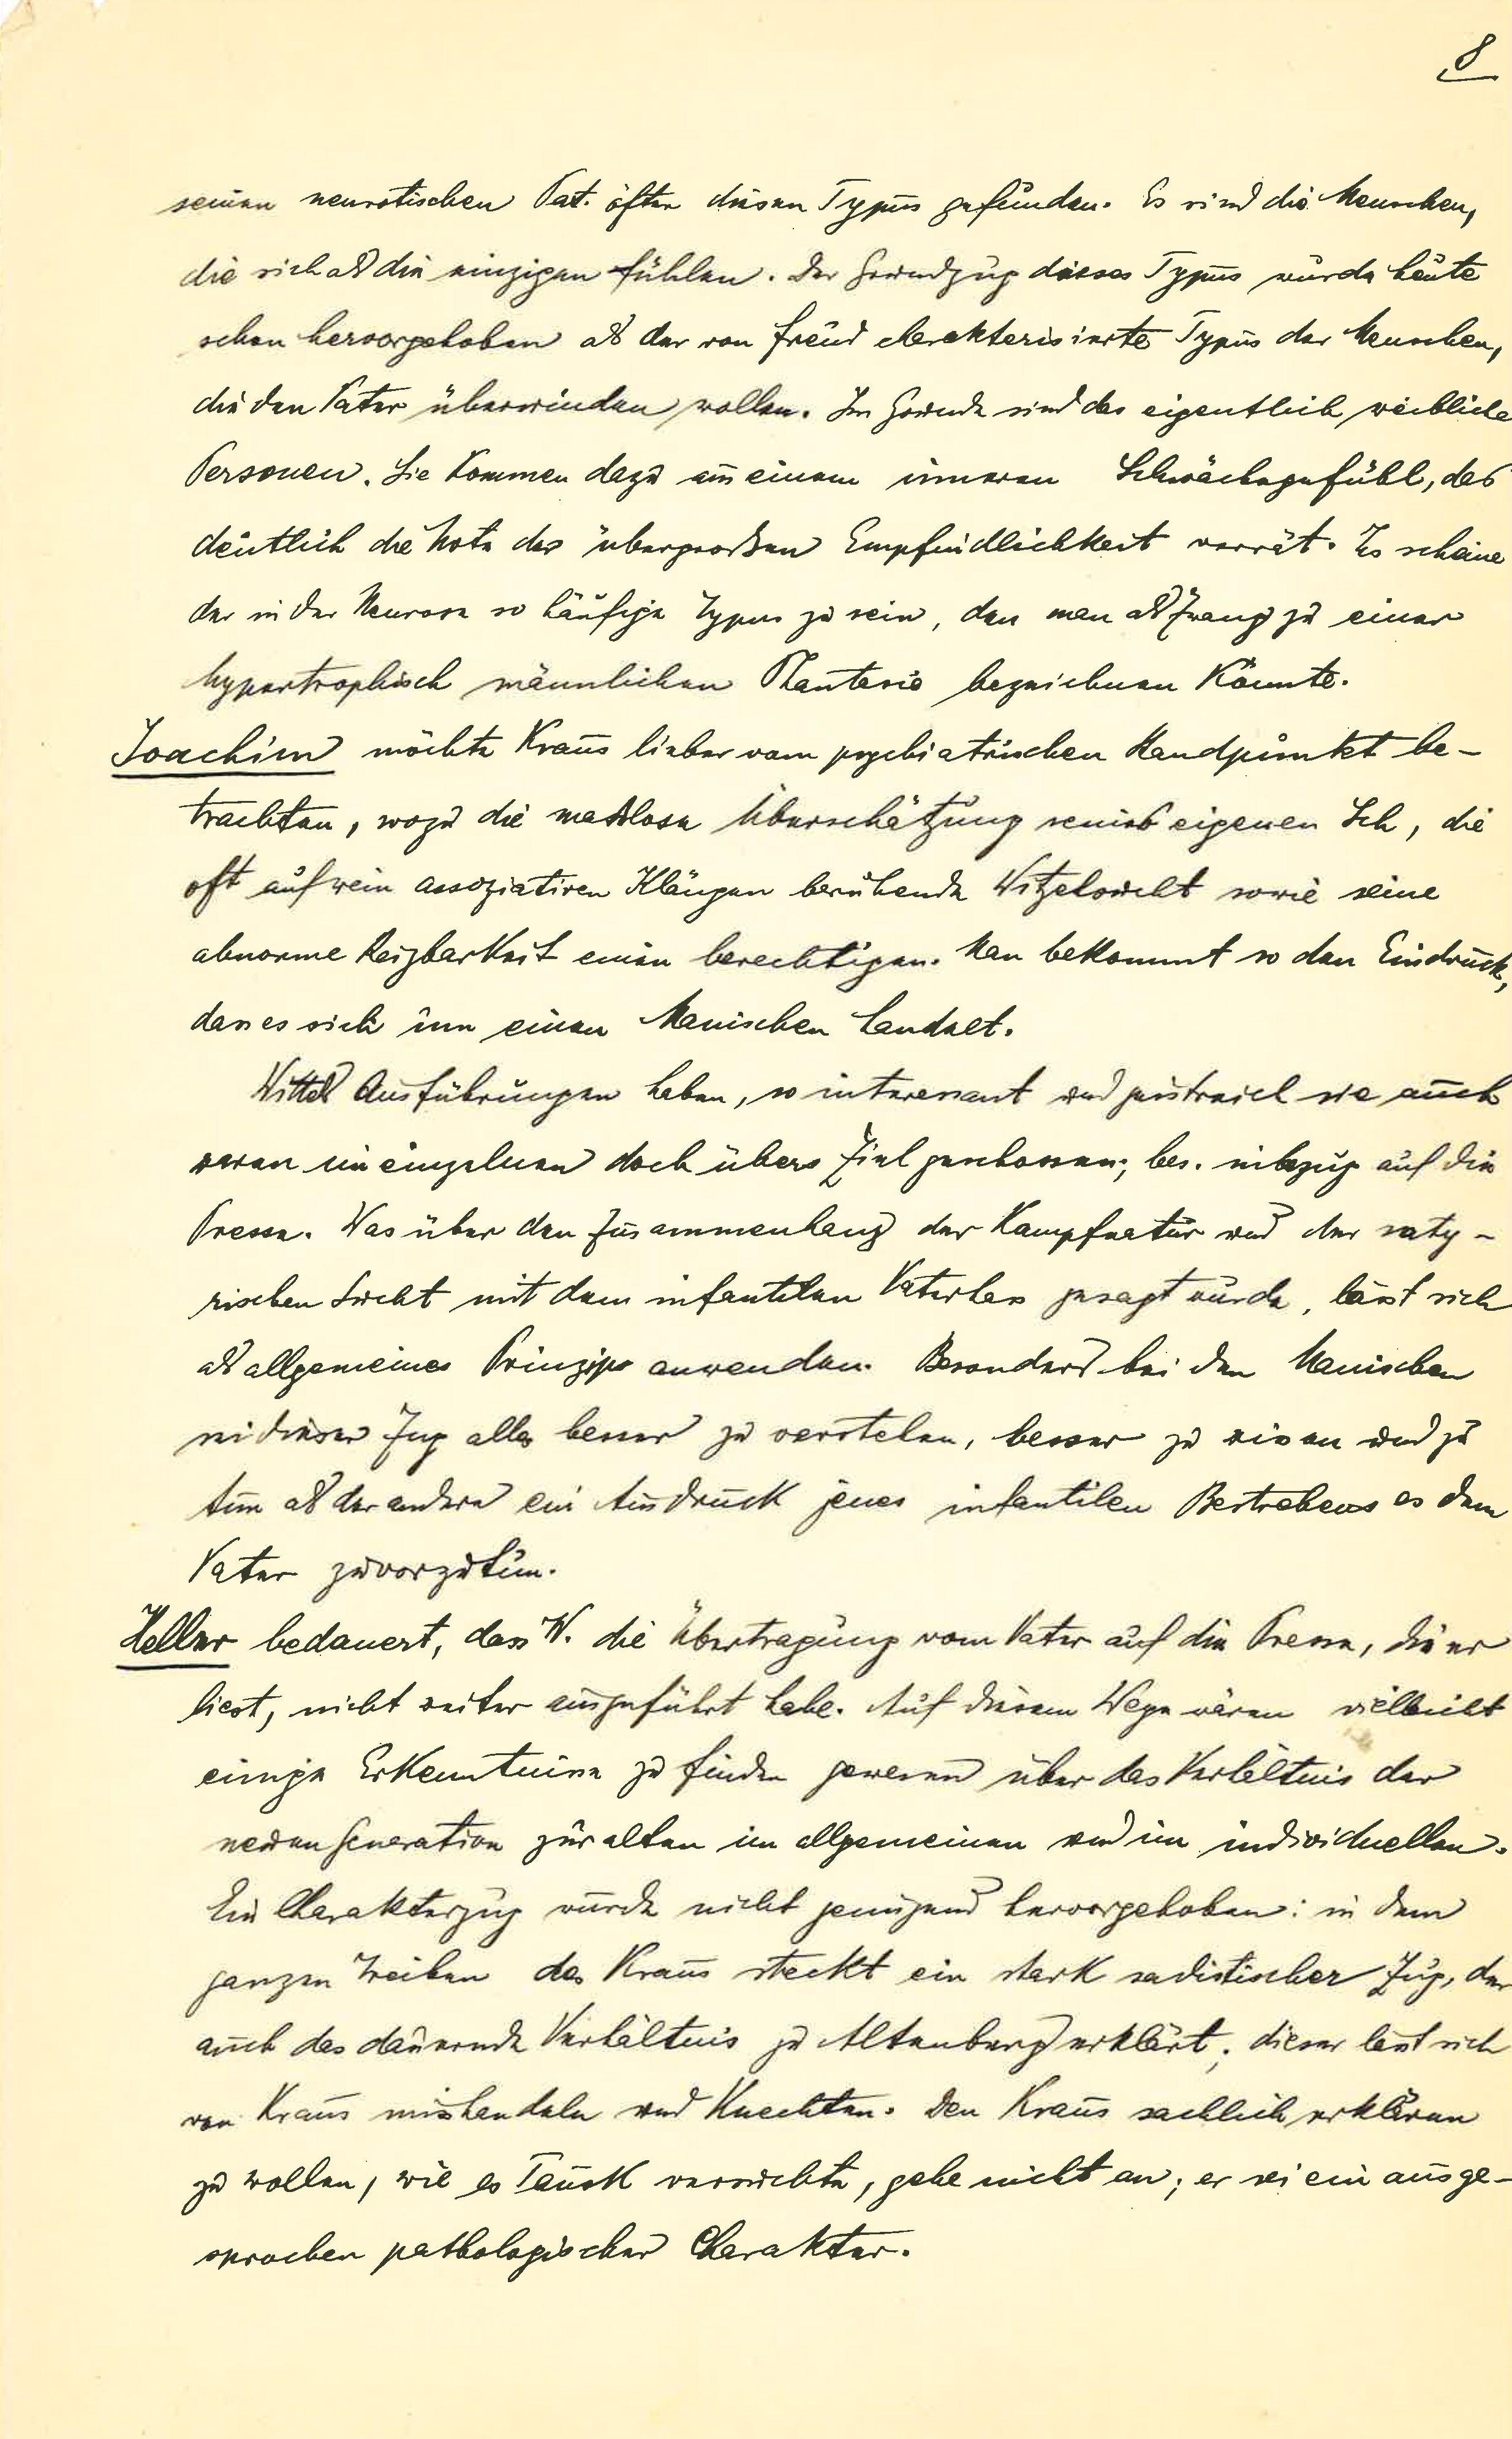 8
seinen neurotischen Pat. öfter diesen Typus gefunden. Es sind die Menschen,
die sich als die einzigen fühlen. Der Grundzug dieses Typus wurde heute
schon hervorgehoben als der von Freud charakterisierte Typus der Menschen,
die den Vater überwinden wollen. Im Grunde sind das eigentlich weibliche
Personen. Sie kommen dazu aus einem inneren Schwächegefühl, das
deutlich die Note der übergroßen Empfindlichkeit verrät. Es scheine
der in der Neurose so häufige Typus zu sein, den man als Zwang zu einer
hypertrophisch männlichen Phantasie bezeichnen könnte.
Joachim möchte Kraus lieber vom psychiatrischen Standpunkt be-
trachten, wozu die masslose Überschätzung seines eigenen Ich, die
oft auf rein assoziativen Klängen beruhende Witzelsucht sowie seine
abnorme Reizbarkeit einen berechtigen. Man bekommt so den Eindruck,
dass es sich um einen Manischen handelt.
Wittels Ausführungen haben, so interessant und geistreich sie auch
waren im einzelnen doch übers Ziel geschossen; bes. inbezug auf die
Presse. Was über den Zusammenhang der Kampfnatur und der saty-
rischen Sucht mit dem infantilen Vaterhass gesagt wurde, lässt sich
als allgemeines Prinzip anwenden. Besonders bei den Manischen
sei dieser Zug alles besser zu verstehen, besser zu wissen und zu
tun als der andere ein Ausdruck jenes infantilen Bestrebens es dem
Vater zuvorzutun.
Heller bedauert, dass W. die Übertragung vom Vater auf die Presse, die er
liest, nicht weiter ausgeführt habe. Auf diesem Wege wären vielleicht
einige Erkenntnisse zu finden gewesen über das Verhältnis der
neuen Generation zur alten im allgemeinen und im individuellen.
Ein Charakterzug wurde nicht genügend hervorgehoben: in dem
ganzen Treiben des Kraus steckt ein stark sadistischer Zug, der
auch das dauernde Verhältnis zu Altenberg erklärt; dieser lässt sich
von Kraus misshandeln und knechten. Den Kraus sachlich erklären
zu wollen, wie es Tausk versuchte, gehe nicht an; er sei ein ausge-
sprochen pathologischer Charakter.